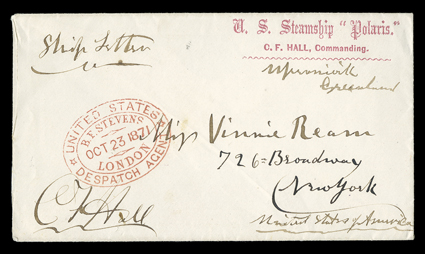 Ship Letter
U. S. Steamship "Polaris."
C. F. HALL, Commanding.
Upernivik
Greenland
UNITED STATES
B.F. STEVENS
OCT 23 1871
LONDON
DESPATCH AGENT
Miss Vinnie Ream
726 = Broadway
New York
United States of America
C F Hall